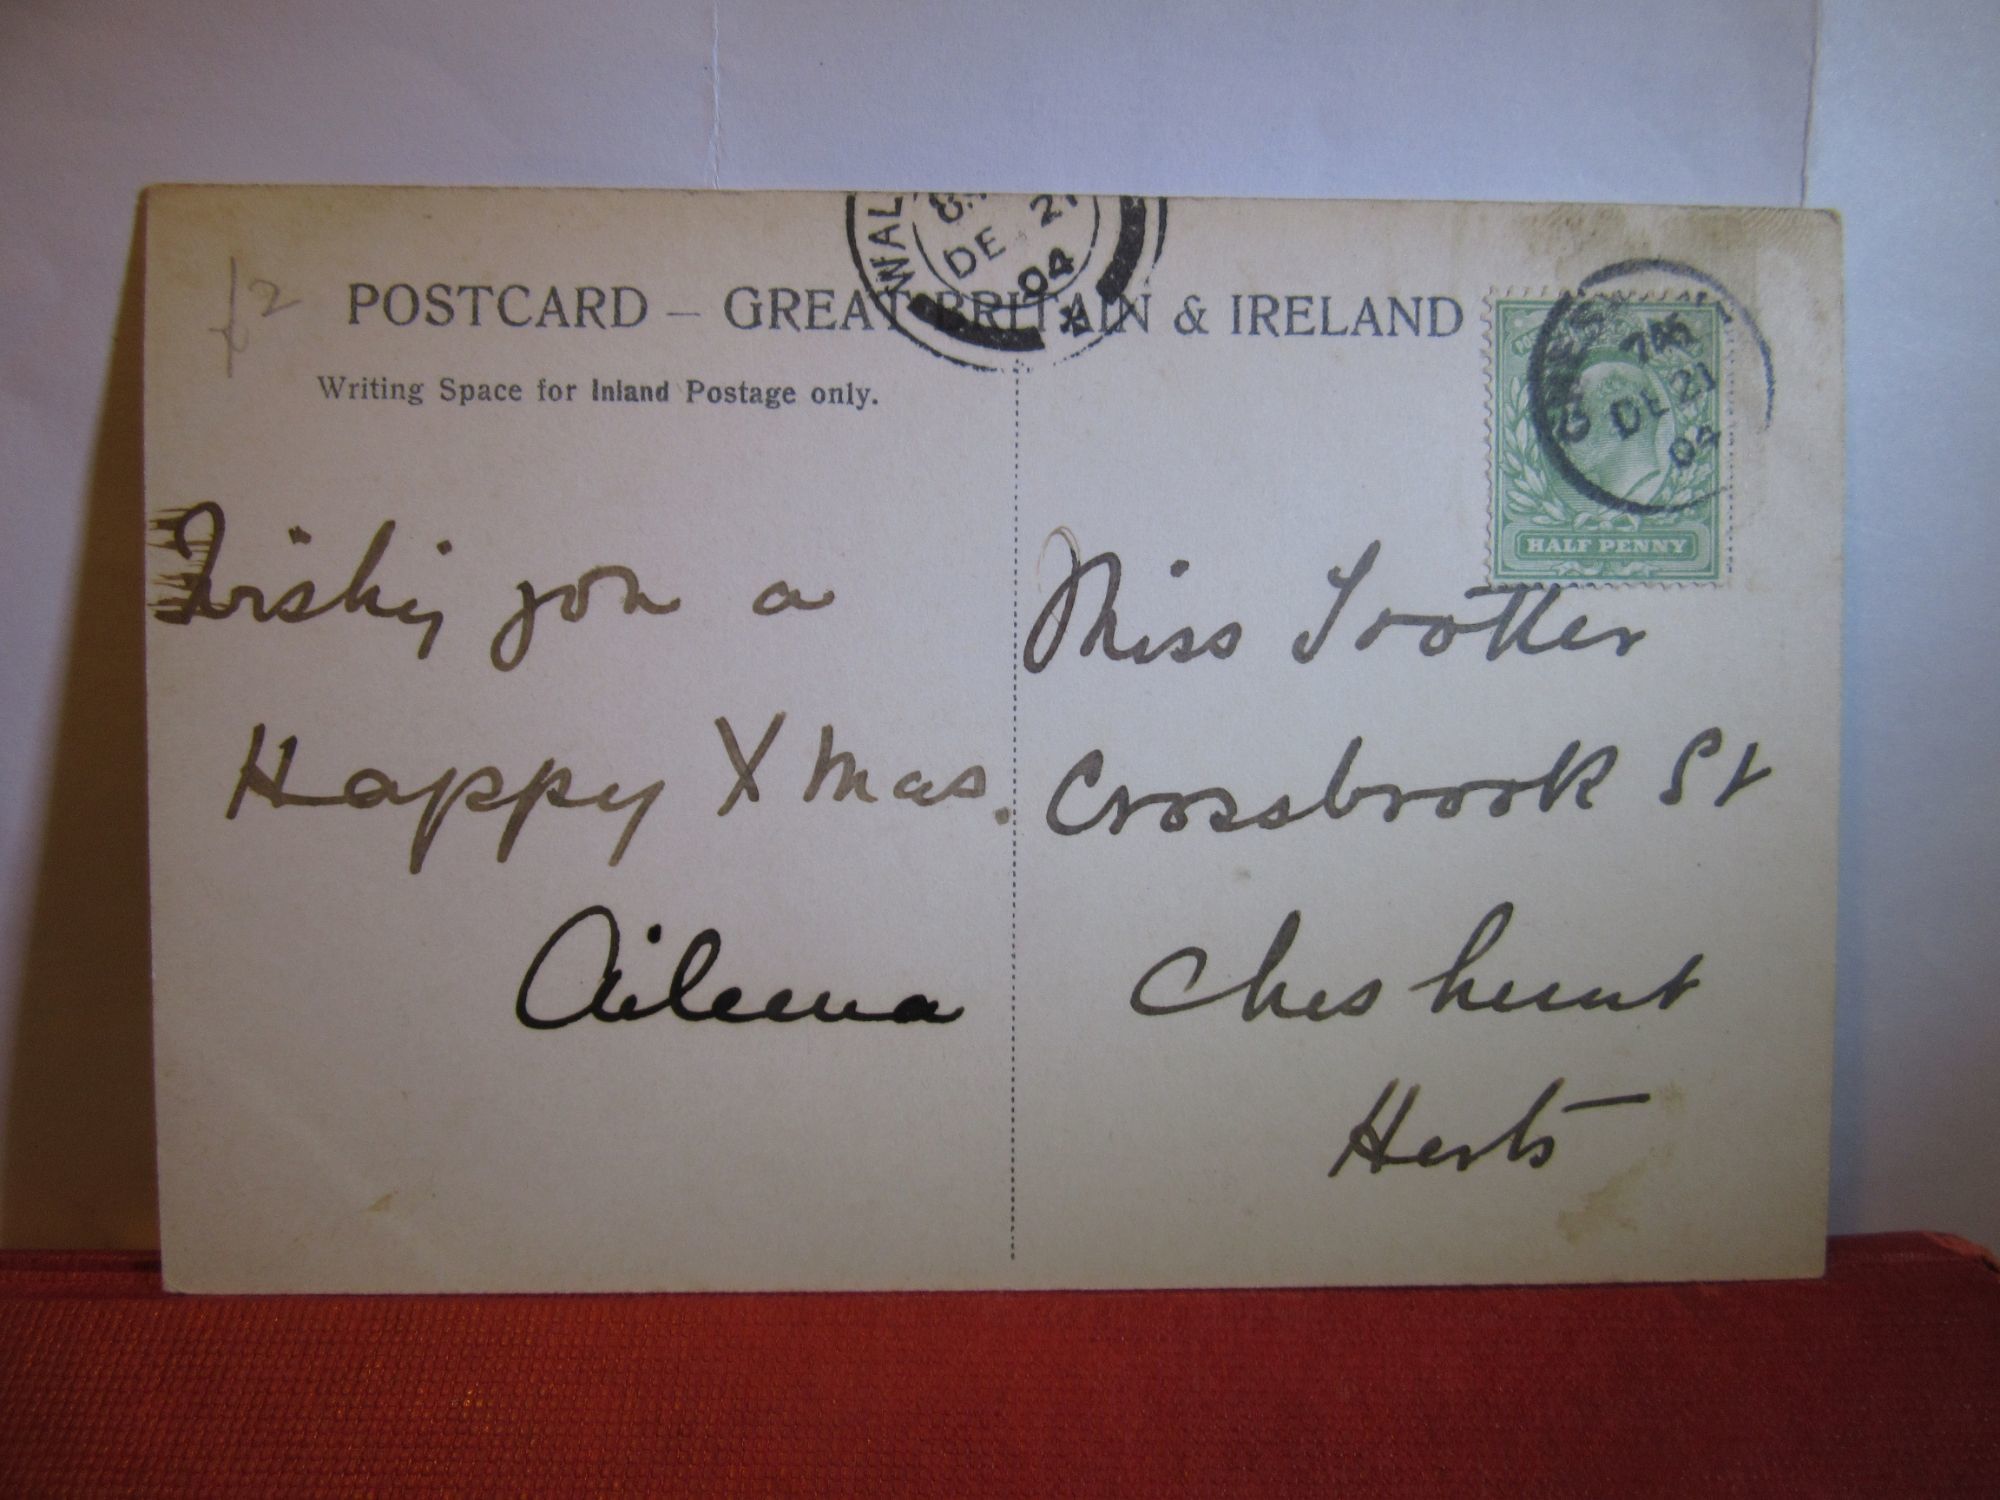 £2
WAL
DE 21
04
POSTCARD – GREAT BRITAIN & IRELAND
Writing Space for Inland Postage only.
CHES
DE 21
04
HALF PENNY
Wishing you a
Happy X Mas.
Aileena
Miss Trotter
Crossbrook St
Cheshunt
Herts